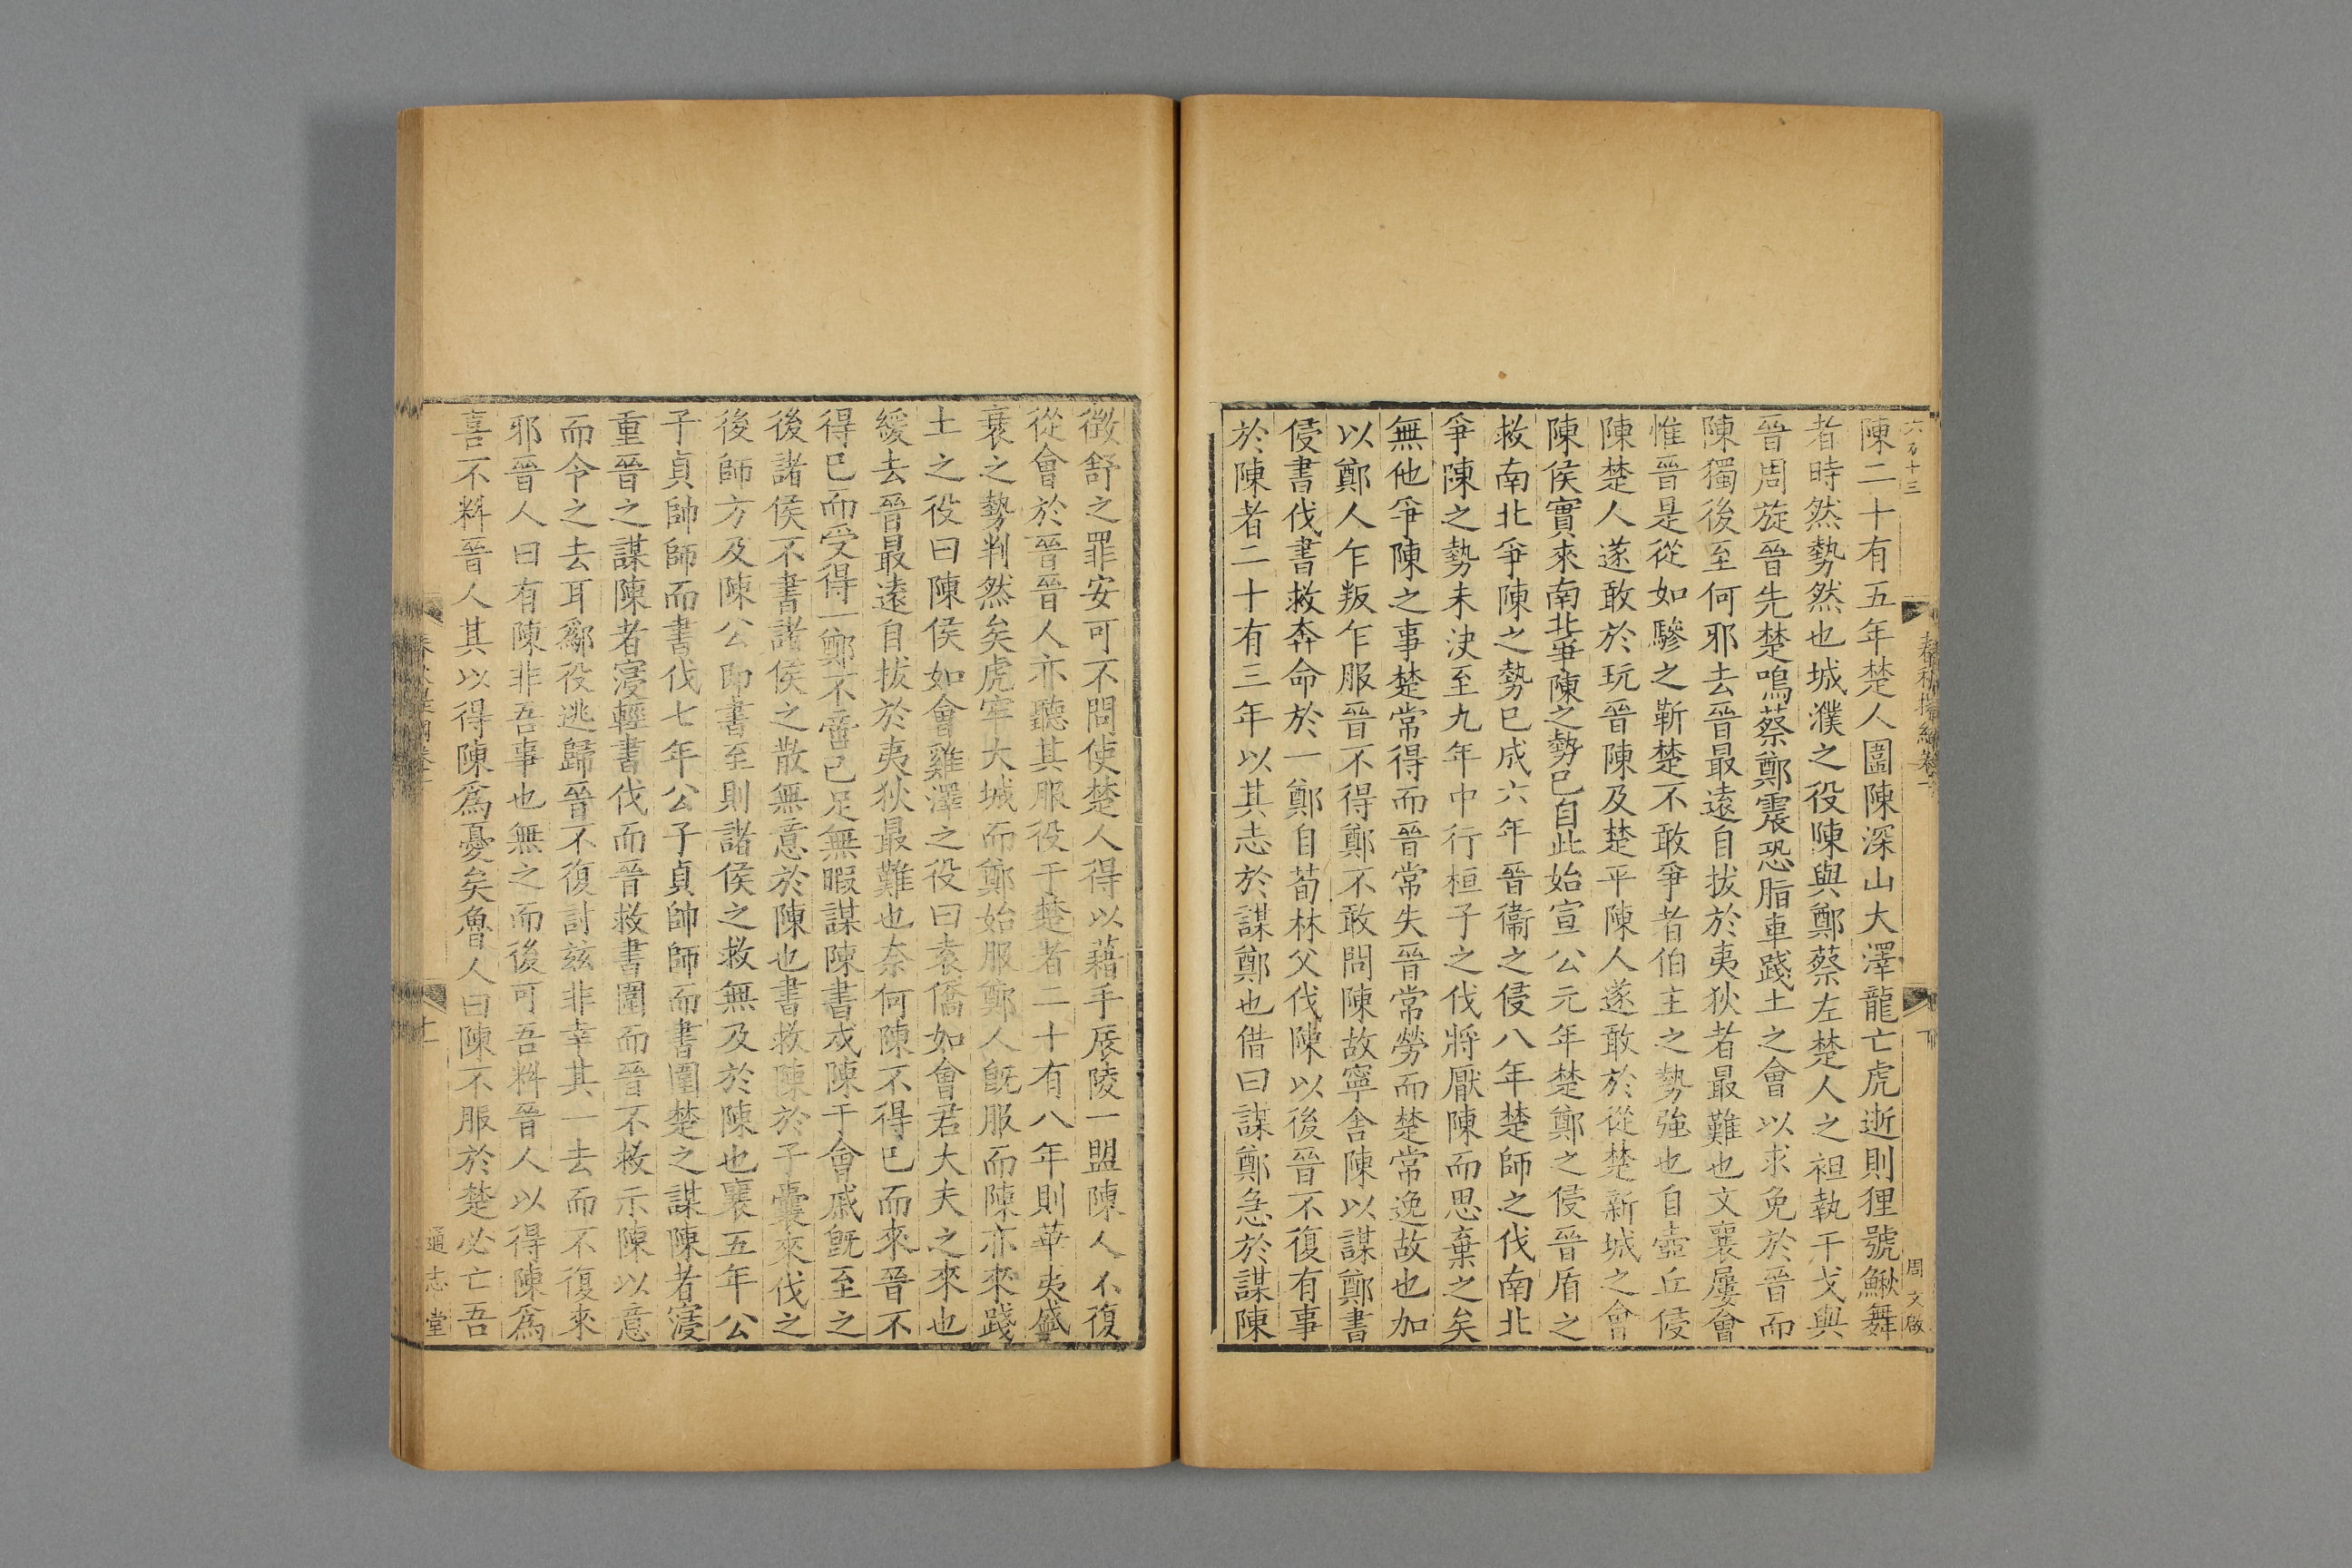 陳二十有五年楚人圍陳深山大澤龍亡虎逝則狸號鰍舞
者時然勢然也城濮之役陳與鄭蔡左楚人之袒執干戈與
晉周旋晉先楚鳴蔡鄭震恐脂車踐土之會以求免於晉而
陳獨後至何邪去晉最遠自拔於夷狄者最難也文襄屢會
惟晉是從如驂之靳楚不敢爭者伯主之勢強也自壺丘侵
陳楚人遂敢於玩晉陳及楚平陳人遂敢於從楚新城之會
陳侯實來南北爭陳之勢已自此始宣公元年楚鄭之侵晉盾之
救南北爭陳之勢已成六年晉衞之侵八年楚師之伐南北
爭陳之勢未決至九年中行桓子之伐將厭陳而思棄之矣
無他爭陳之事楚常得而晉常失晉常勞而楚常逸故也加
以鄭人乍叛乍服晉不得鄭不敢問陳故寧舍陳以謀鄭書
侵書伐書救奔命於一鄭自荀林父伐陳以後晉不復有事
於陳者二十有三年以其志於謀鄭也借曰謀鄭急於謀陳
徵舒之罪安可不問使楚人得以藉手辰陵一盟陳人不復
從會於晉晉人亦聽其服役于楚者二十有八年則華夷盛
衰之勢判然矣虎牢大城而鄭始服鄭人旣服而陳亦來踐
土之役曰陳侯如會雞澤之役曰袁僑如會君大夫之來也
緩去晉最遠自拔於夷狄最難也奈何陳不得已而來晉不
得已而受得一鄭不啻已足無暇謀陳書戍陳于會戚旣至之
後諸侯不書諸侯之散無意於陳也書救陳於子囊來伐之
後師方及陳公卽書至則諸侯之救無及於陳也襄五年公
子貞帥師而書伐七年公子貞帥師而書圍楚之謀陳者寖
重晉之謀陳者寖輕書伐而晉救書圍而晉不救示陳以意
而令之去耳鄬役逃歸晉不復討茲非幸其一去而不復來
邪晉人曰有陳非吾事也無之而後可吾料晉人以得陳爲
喜不料晉人其以得陳爲憂矣魯人曰陳不服於楚必亡吾
通志堂